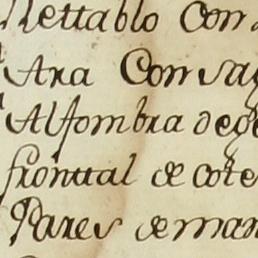 Rettablo Con
Ara Con sag
Alfombra de
fronttal de cote
Pares de man